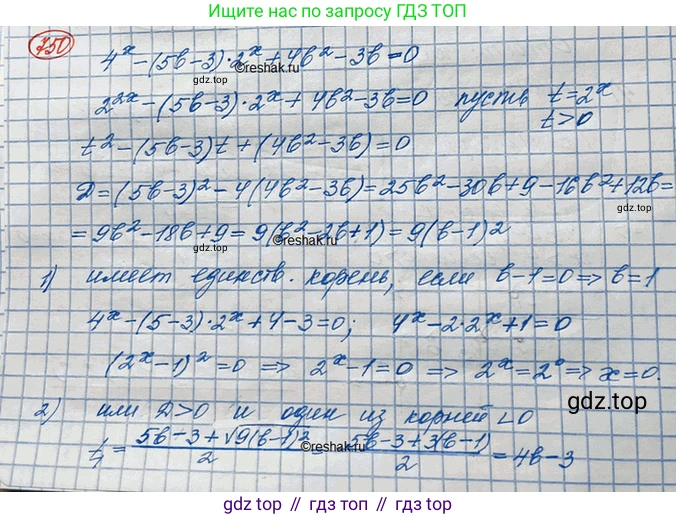 Нашли ещё по запросу ГДЗ ТОП
750
4^x - (5b-3)·2^x + 4b² - 3b = 0
gdz.top ©reshak.ru gdz.top
2^{2x} - (5b-3)·2^x + 4b² - 3b = 0 пусть t = 2^x
t > 0
t² - (5b-3)t + (4b² - 3b) = 0
D = (5b-3)² - 4(4b² - 3b) = 25b² - 30b + 9 - 16b² + 12b =
gdz.top
= 9b² - 18b + 9 = 9(b² - 2b + 1) = 9(b-1)²
©reshak.ru
1) имеет единств. корень, если b-1=0 ⇒ b=1
4^x - (5-3)·2^x + 4 - 3 = 0; 4^x - 2·2^x + 1 = 0
(2^x - 1)² = 0 ⇒ 2^x - 1 = 0 ⇒ 2^x = 2^0 ⇒ x = 0.
gdz.top
2) или D>0 и один из корней <0
©reshak.ru
t₁ = (5b-3+√9(b-1)²)/2 = (5b-3+3(b-1))/2 = 4b-3
gdz.top
gdz.top // гдз.топ // gdz.top // гдз.топ